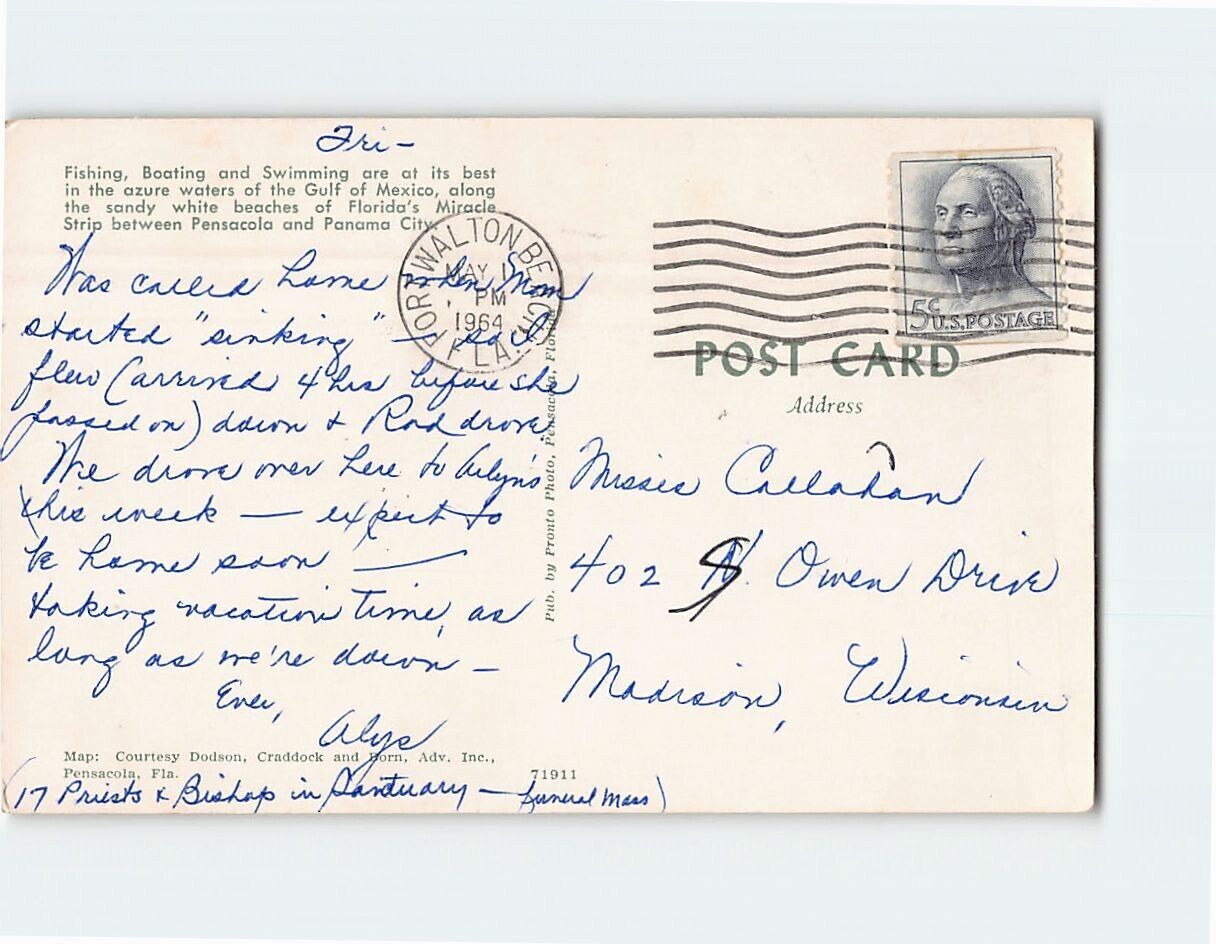 Fri-
Fishing, Boating and Swimming are at its best
in the azure waters of the Gulf of Mexico, along
the sandy white beaches of Florida's Miracle
Strip between Pensacola and Panama City.
Was called home when Mom
started "sinking" — so I
flew (arrived 4 hrs before she
passed on) down & Rod drove.
We drove over here to
this week — expect to
be home soon —
taking vacation time, as
long as we're down —
Ever,
Alys
Map: Courtesy Dodson, Craddock and Born, Adv. Inc.,
Pensacola, Fla.
71911
(17 Priests & Bishop in Santuary — funeral Mass)
Pub. by Pronto Photo, Pensacola, Florida
FORT WALTON BEACH
MAY 1
PM
1964
FLA.
5c U.S. POSTAGE
POST CARD
Address
Misses Callahan
402 Owen Drive
Madison, Wisconsin